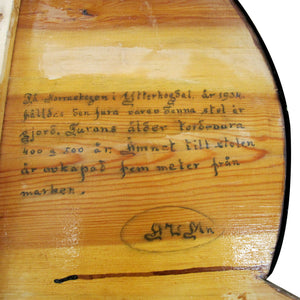 På Monsategen i Ytterhogdal, år 1934.
fälldes den fura varav denna stol är
gjord. Furans ålder tordevara
400 á 500 år. Ämnet till stolen
är avkapad fem meter från
marken.